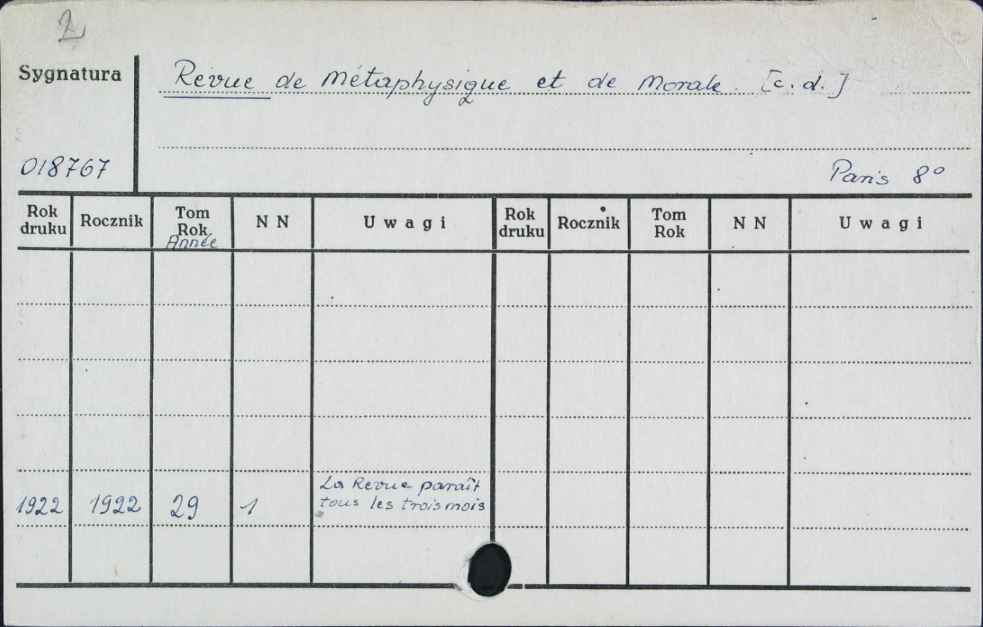 2
Sygnatura
Revue de Métaphysique et de Morale. [c.d.]
018767
Paris 8°
Rok druku Rocznik Tom Rok Année N N Uwagi Rok druku Rocznik Tom Rok N N Uwagi
La Revue paraît
1922 1922 29 1 tous les trois mois